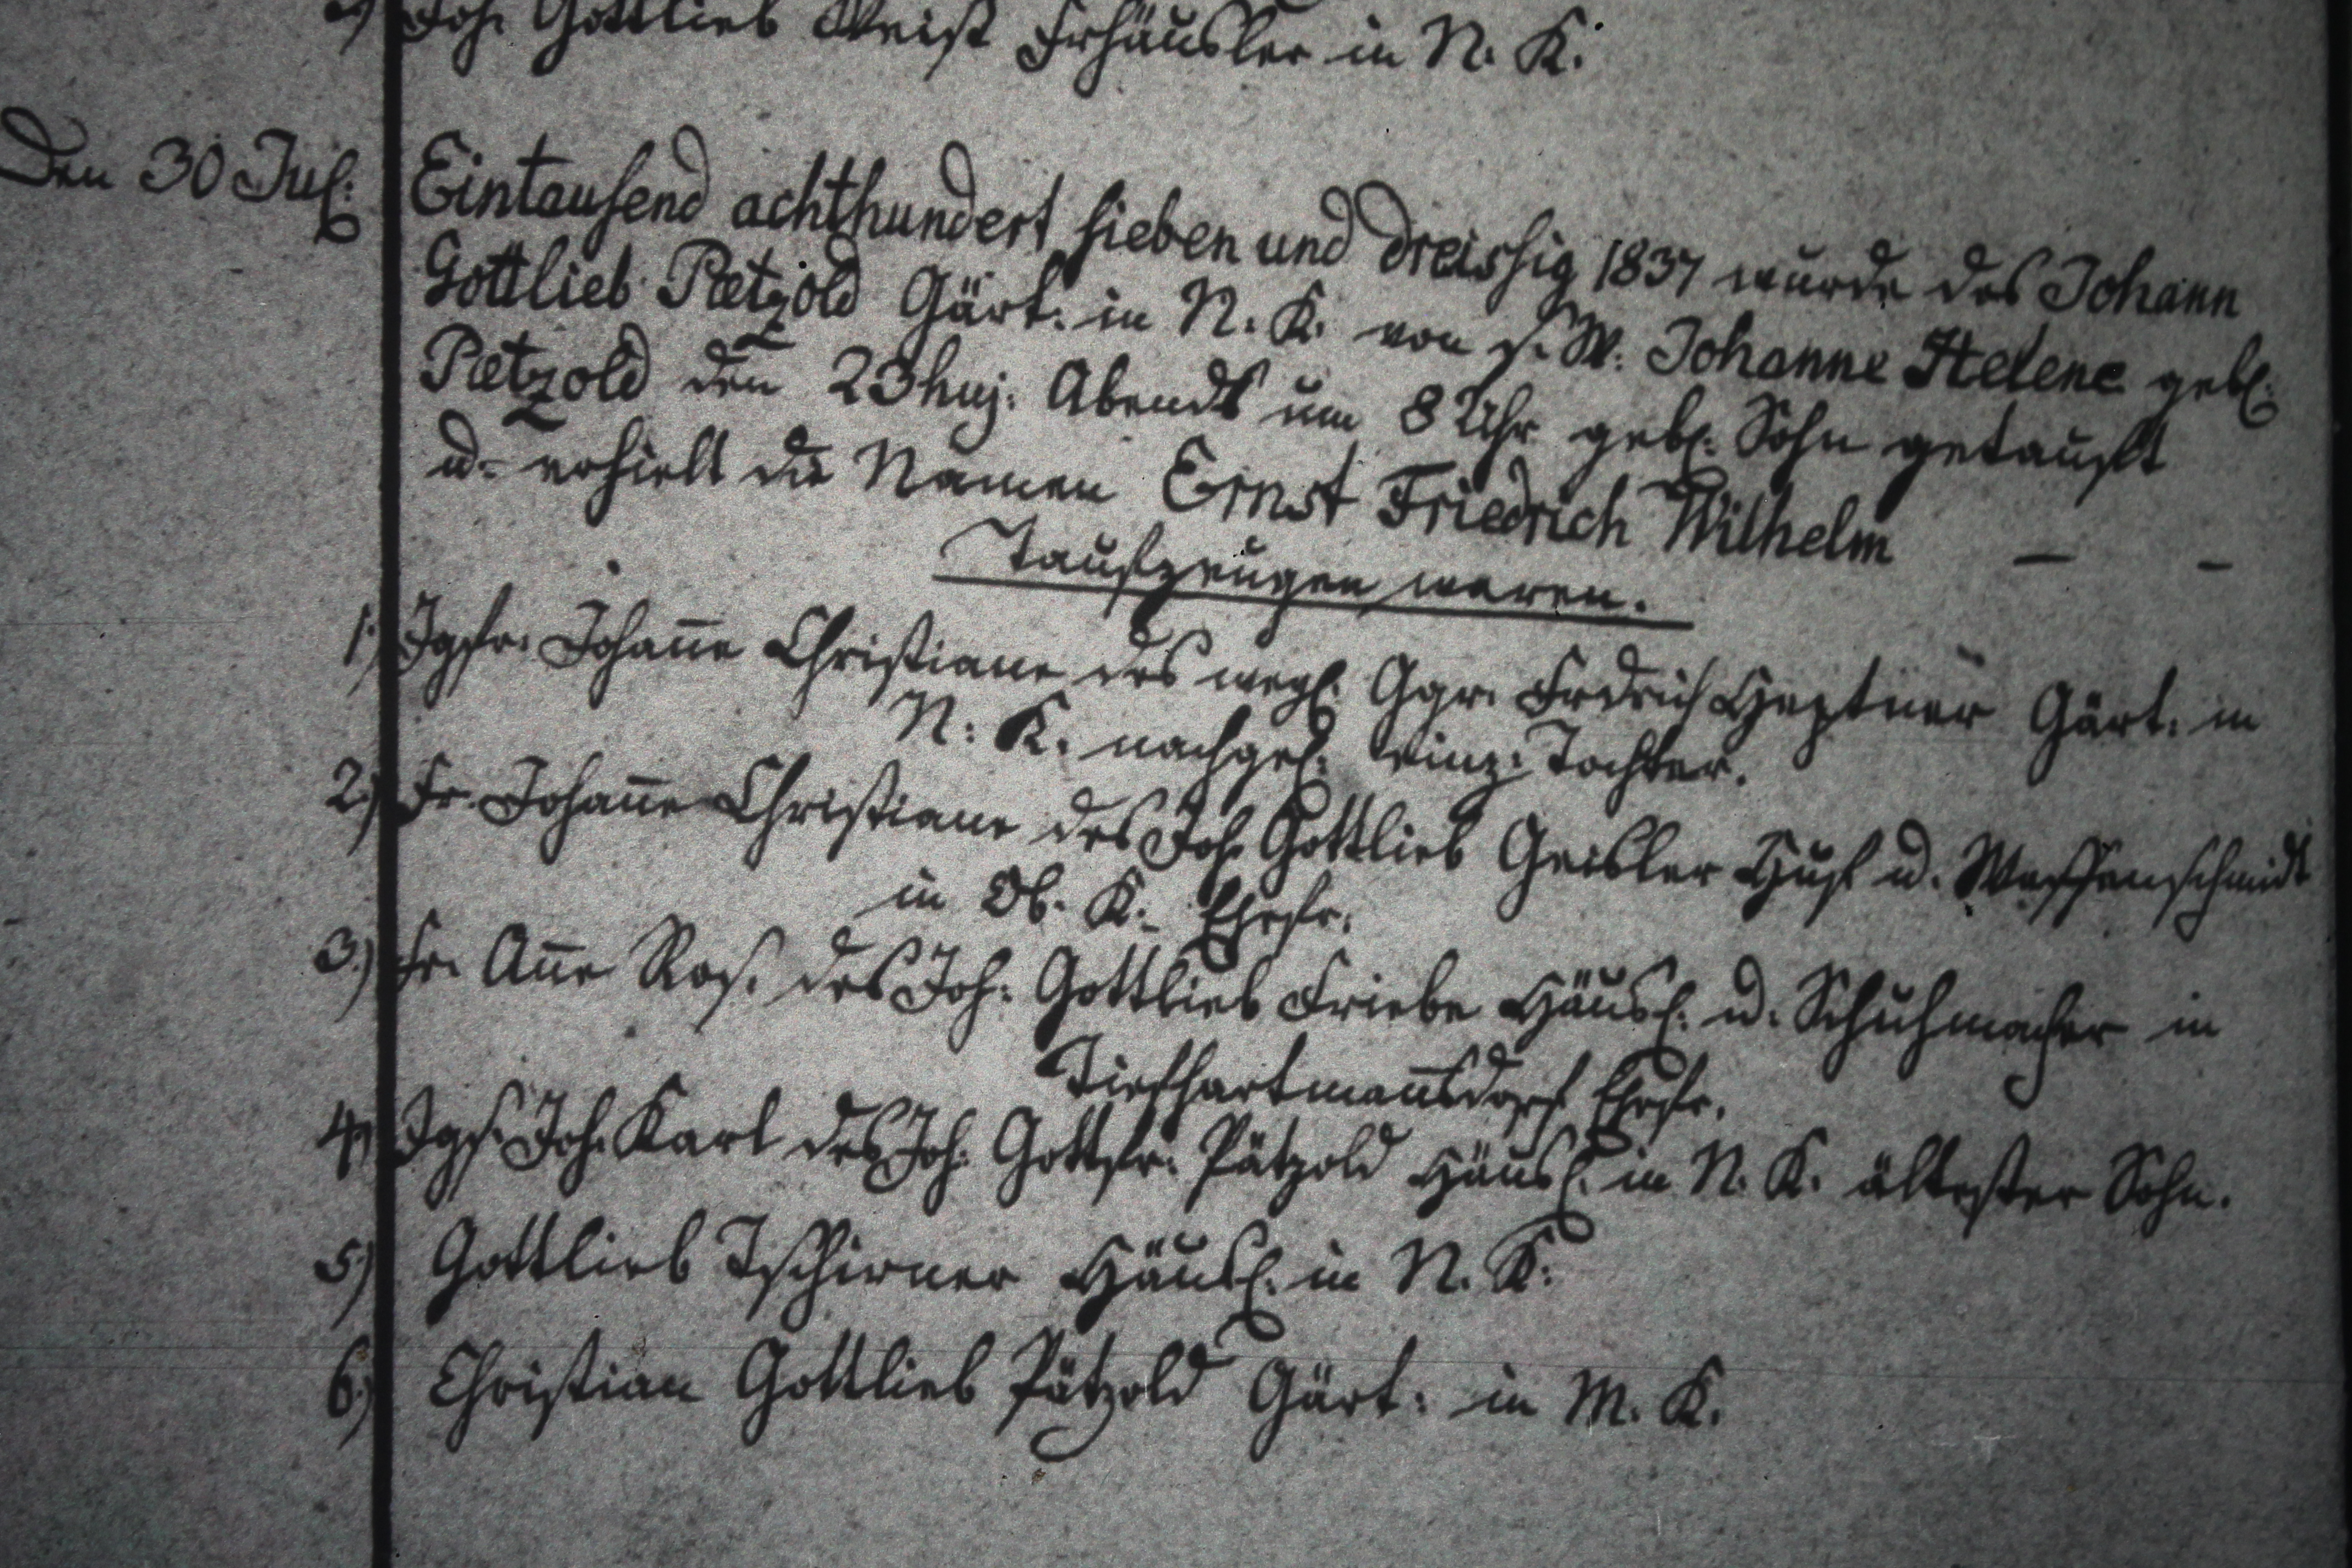 4) Joh. Gottlieb Weist Frhäusler in N. K.
Den 30 Jul. Eintausend achthundert sieben und dreissig 1837 wurde des Johann
Gottlieb Pætzold Gärt: in N. K. von s. W. Johanne Helene geb.
Pætzold den 23 huj. Abends um 8 Uhr geb. Sohn getauft
u. erhielt die Namen Ernst Friedrich Wilhelm — -
Taufzeugen waren.
1.) Jgfr. Johan̄e Christiane des weyl. Ggr. Frdrich Heptner Gärt. in
N. K. nachgel. einz. Tochter.
2.) Fr. Johan̄e Christiane des Joh. Gottlieb Geisler Huf u. Waffenschmidt
in Ob. K. Ehefr.
3.) Fr. An̄e Ros. des Joh. Gottlieb Friebe Häusl. u. Schuhmacher in
Tiefhartman̄sdorf Ehefr.
4.) Jgs. Joh. Karl des Joh. Gottfr. Pätzold Häusl. in N. K. ältester Sohn.
5.) Gottlieb Tschirner Häusl. in N. K.
6.) Christian Gottlieb Pätzold Gärt. in M. K.